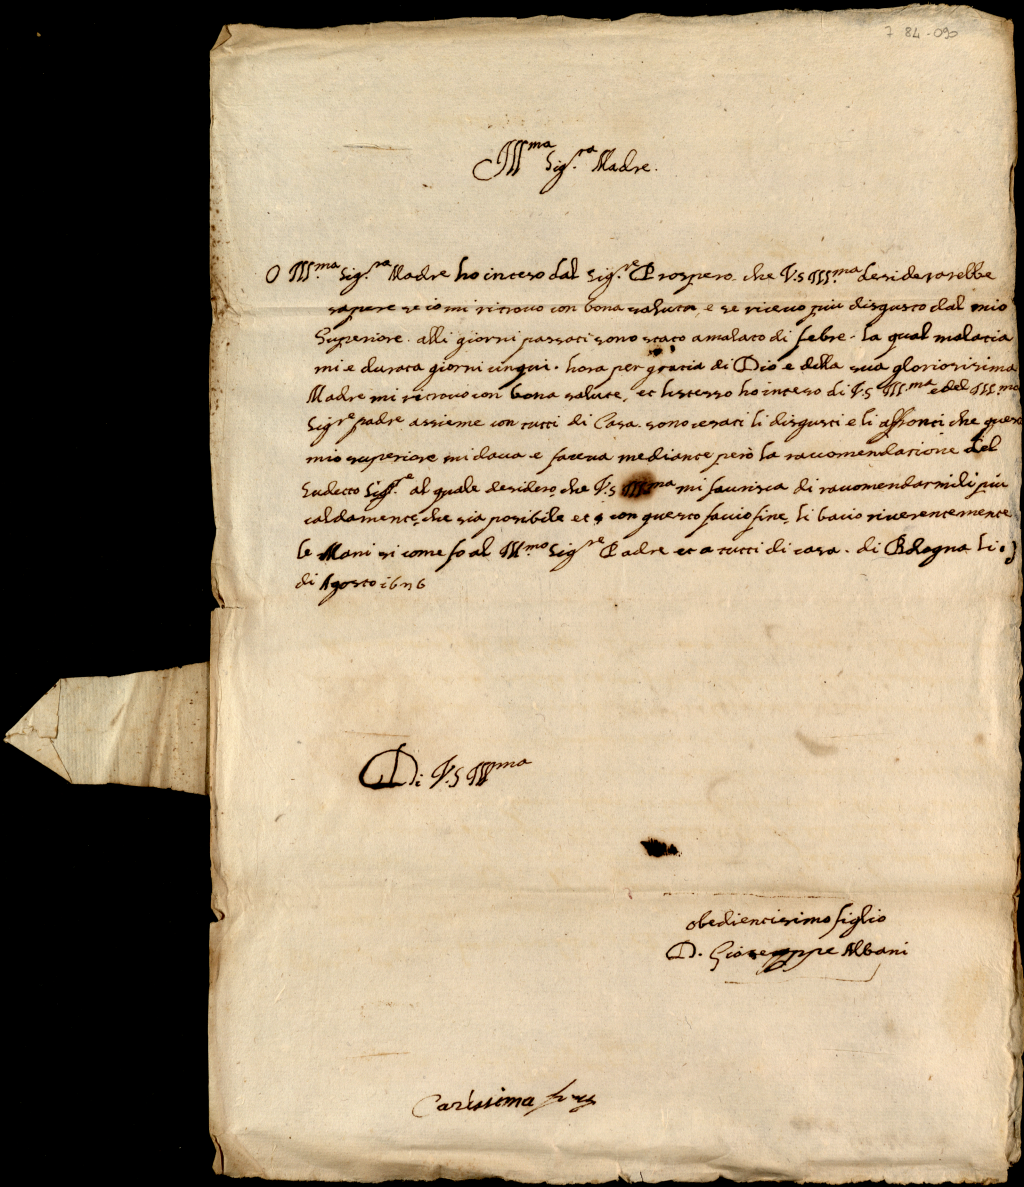 7 84-090
Ill.ma Sig.ra Madre.
O Ill.ma Sig.ra Madre ho inteso dal Sig.re Prospero che V.S Ill.ma desidararebbe
sapere se io mi ritrovo con bona saluta, e se ricevo più disgusto dal mio
Superiore. alli giorni passati sono stato amalato di febre. la qual malatia
mi e durata giorni cinqui. hora per gratia di Dio e della sua gloriosissima
Madre mi ritrovo con bona salute, et listesso ho inteso di V.S Ill.ma e del Ill.mo
Sig.re padre assieme con tutti di Casa. sono cesati li disgusti e li affronti che questo
mio superiore mi dava e faceva mediante però la racomendatione del
Sudetto Sig.re al quale desidero, che V.S Ill.ma mi faurisca di racomendarmili più
caldamente, che sia posibile et con questo faccio fine, li bacio riverentemente
le Mani si come fo al Ill.mo Sig.re Padre et a tutti di casa. di Bologna li
di Agosto 1676
Di V.S Ill.ma
obedientisimo figlio
D. Gioseppe Albani
Carissima